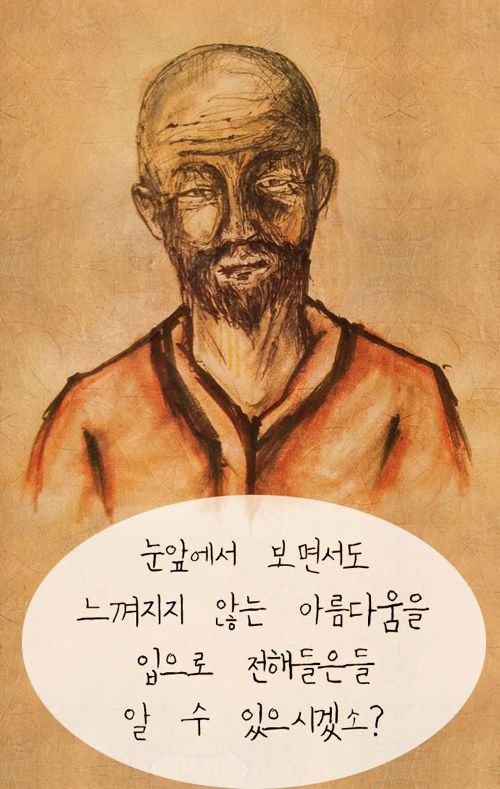 눈앞에서 보면서도
느껴지지 않는 아름다움을
입으로 전해들은들
알 수 있으시겠소?